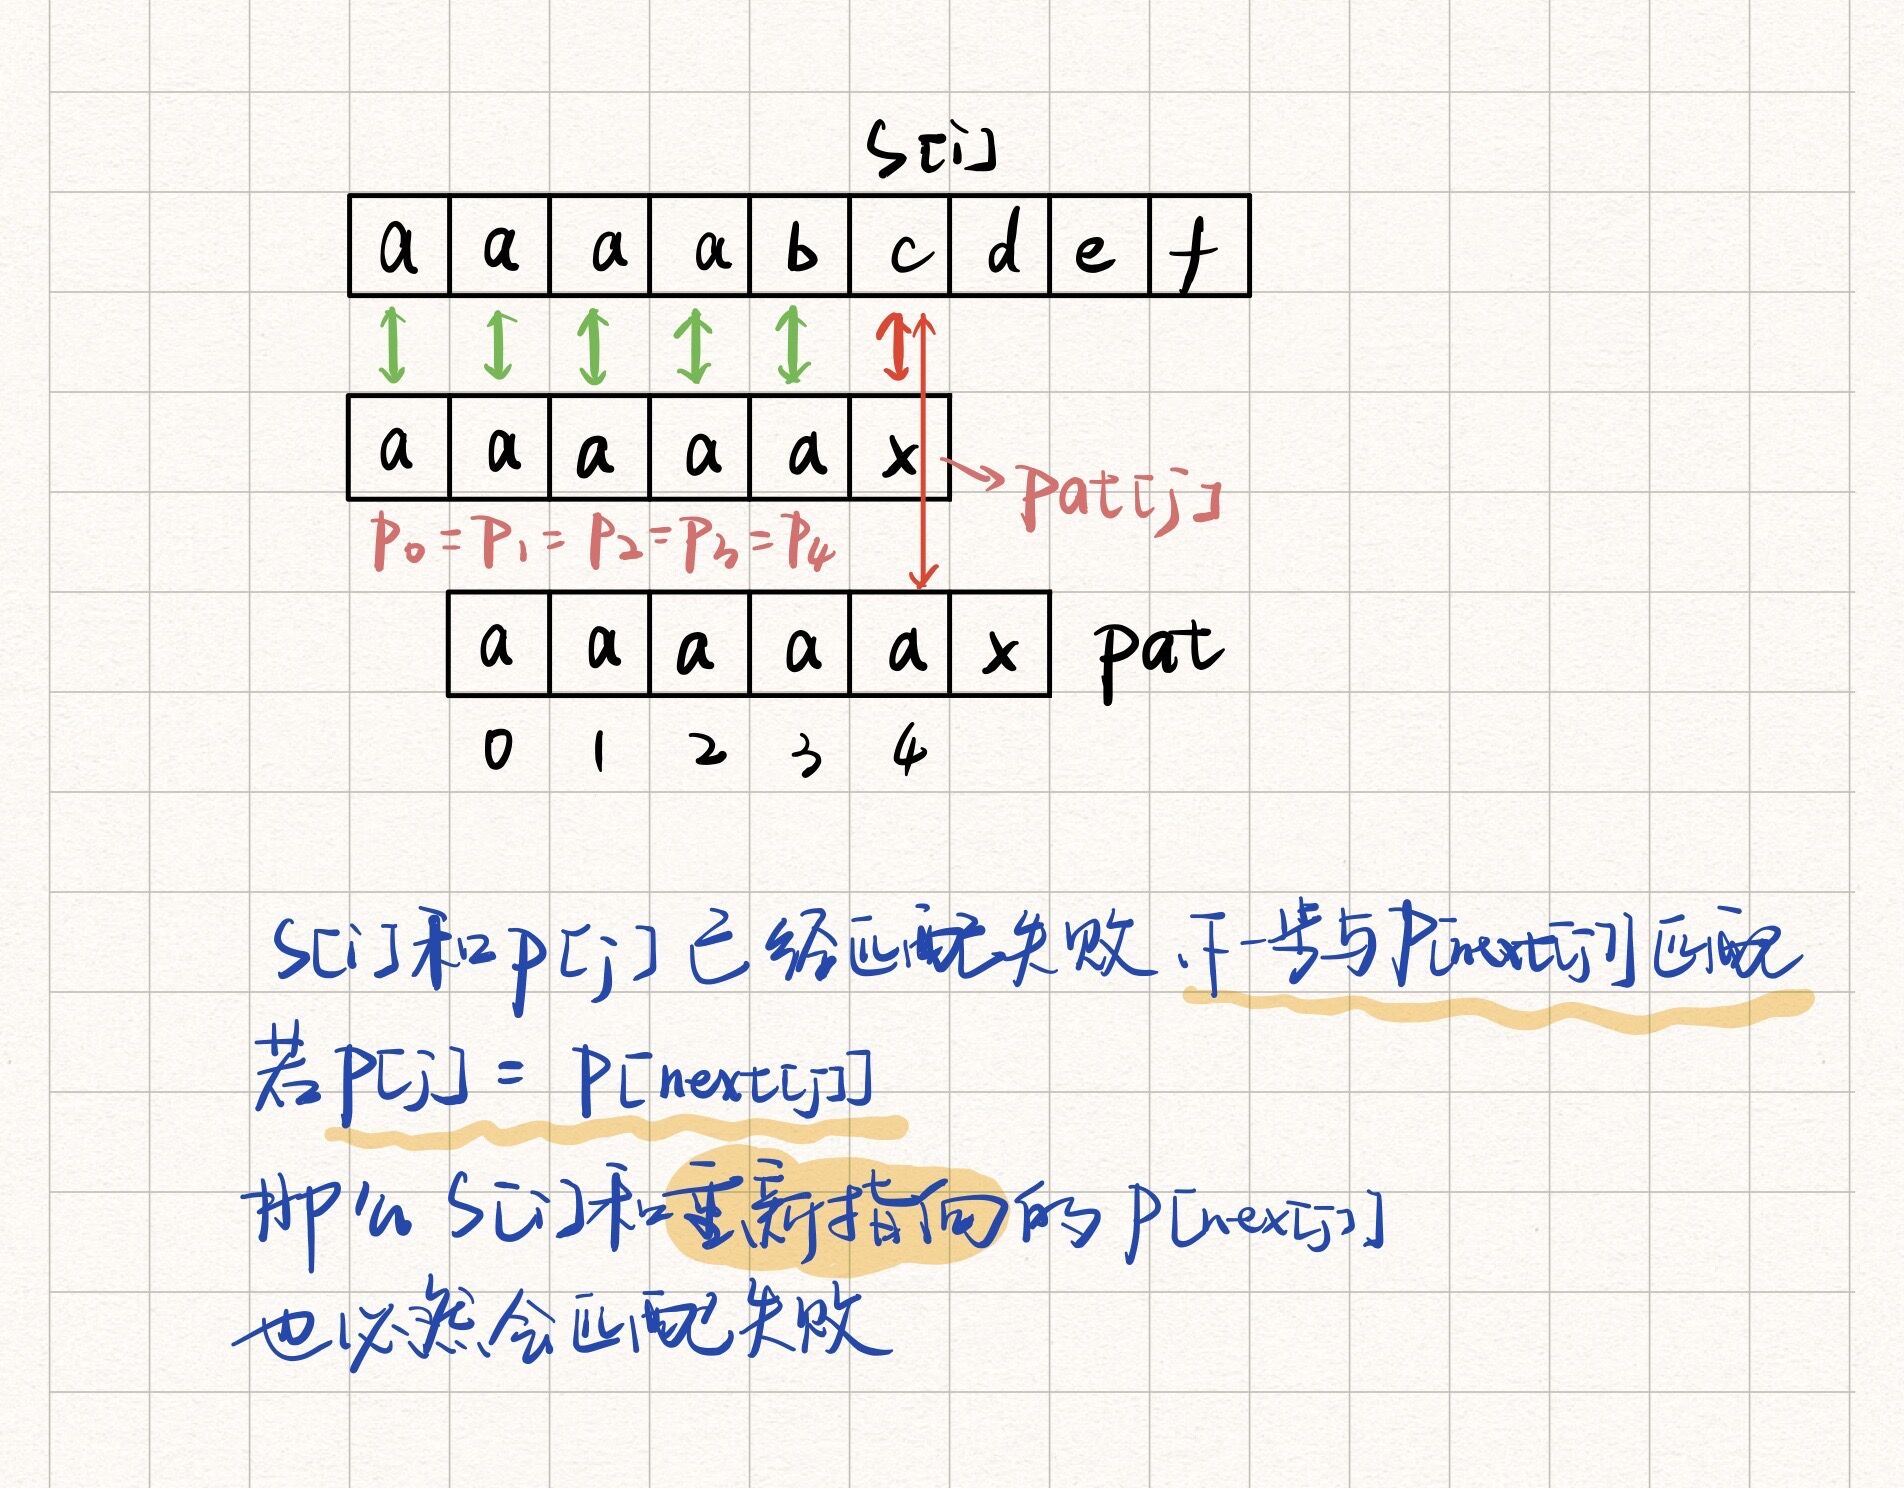 S[i]
a a a a b c d e f
a a a a a x
pat[j]
P₀=P₁=P₂=P₃=P₄
a a a a a x pat
0 1 2 3 4
S[i]和p[j]已经匹配失败,下一步与P[next[j]]匹配
若p[j] = P[next[j]]
那么S[i]和重新指向的P[nex[j]]
也必然会匹配失败